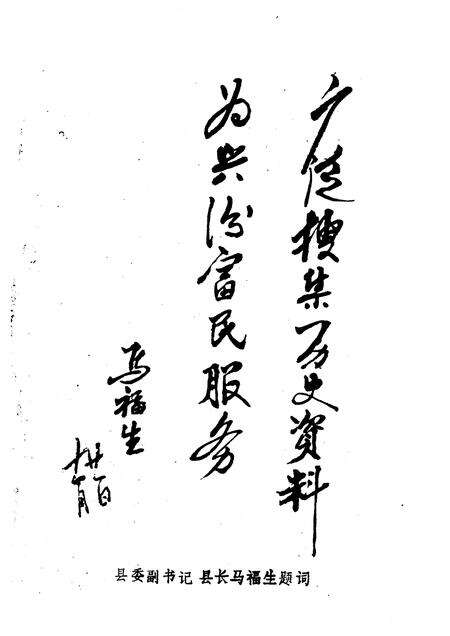 广泛搜集历史資料
为兴汾富民服务
马福生
县委副书记 县长马福生题词